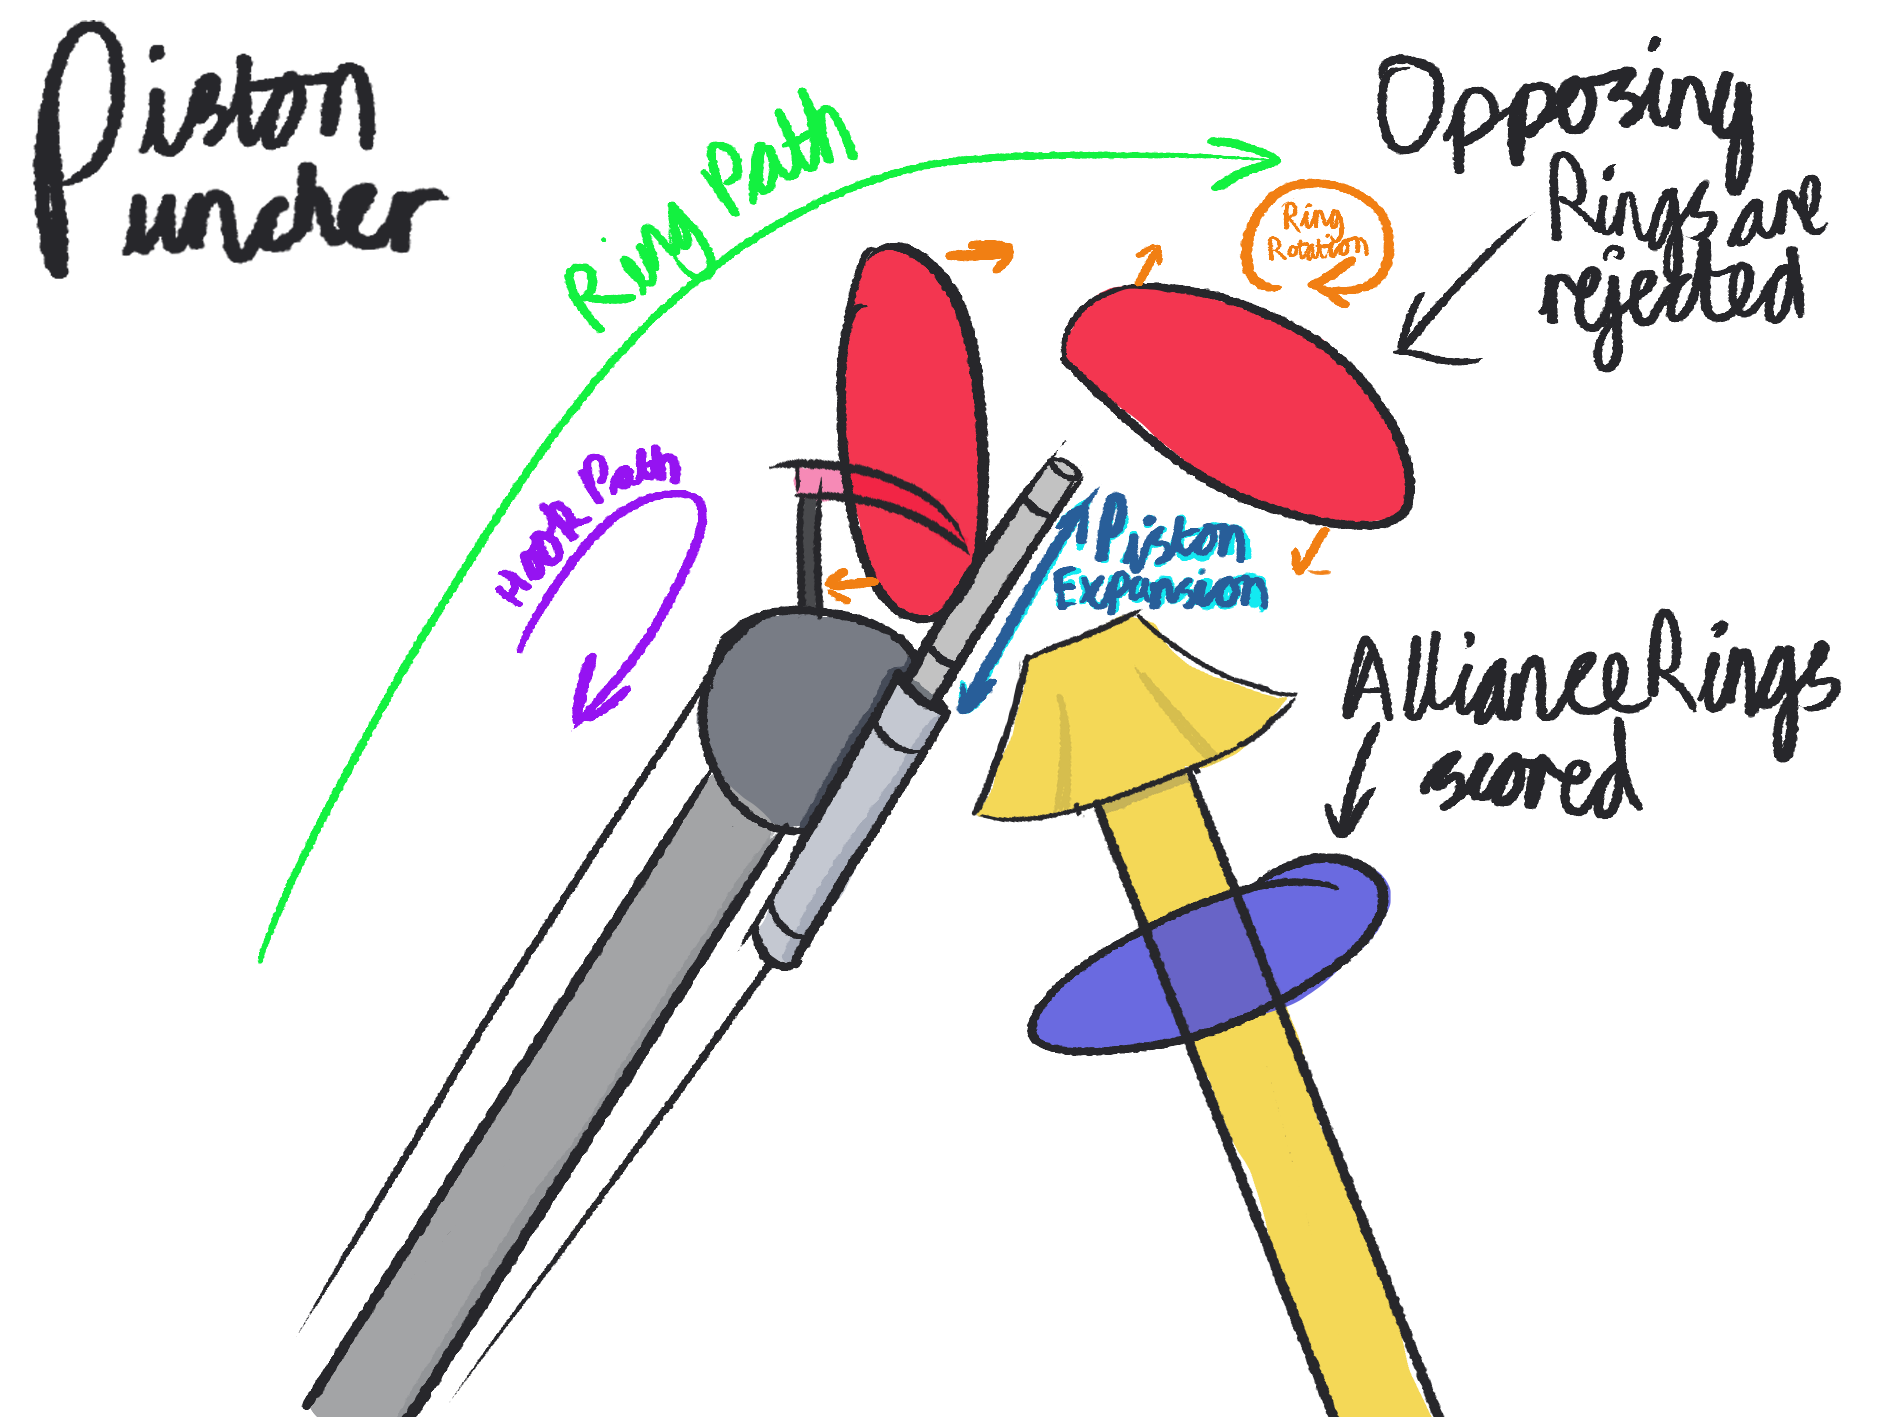 Piston
Puncher
Ring Path
Opposing
Rings are
rejected
Ring
Rotation
Hook Path
Piston
Expansion
Alliance Rings
scored